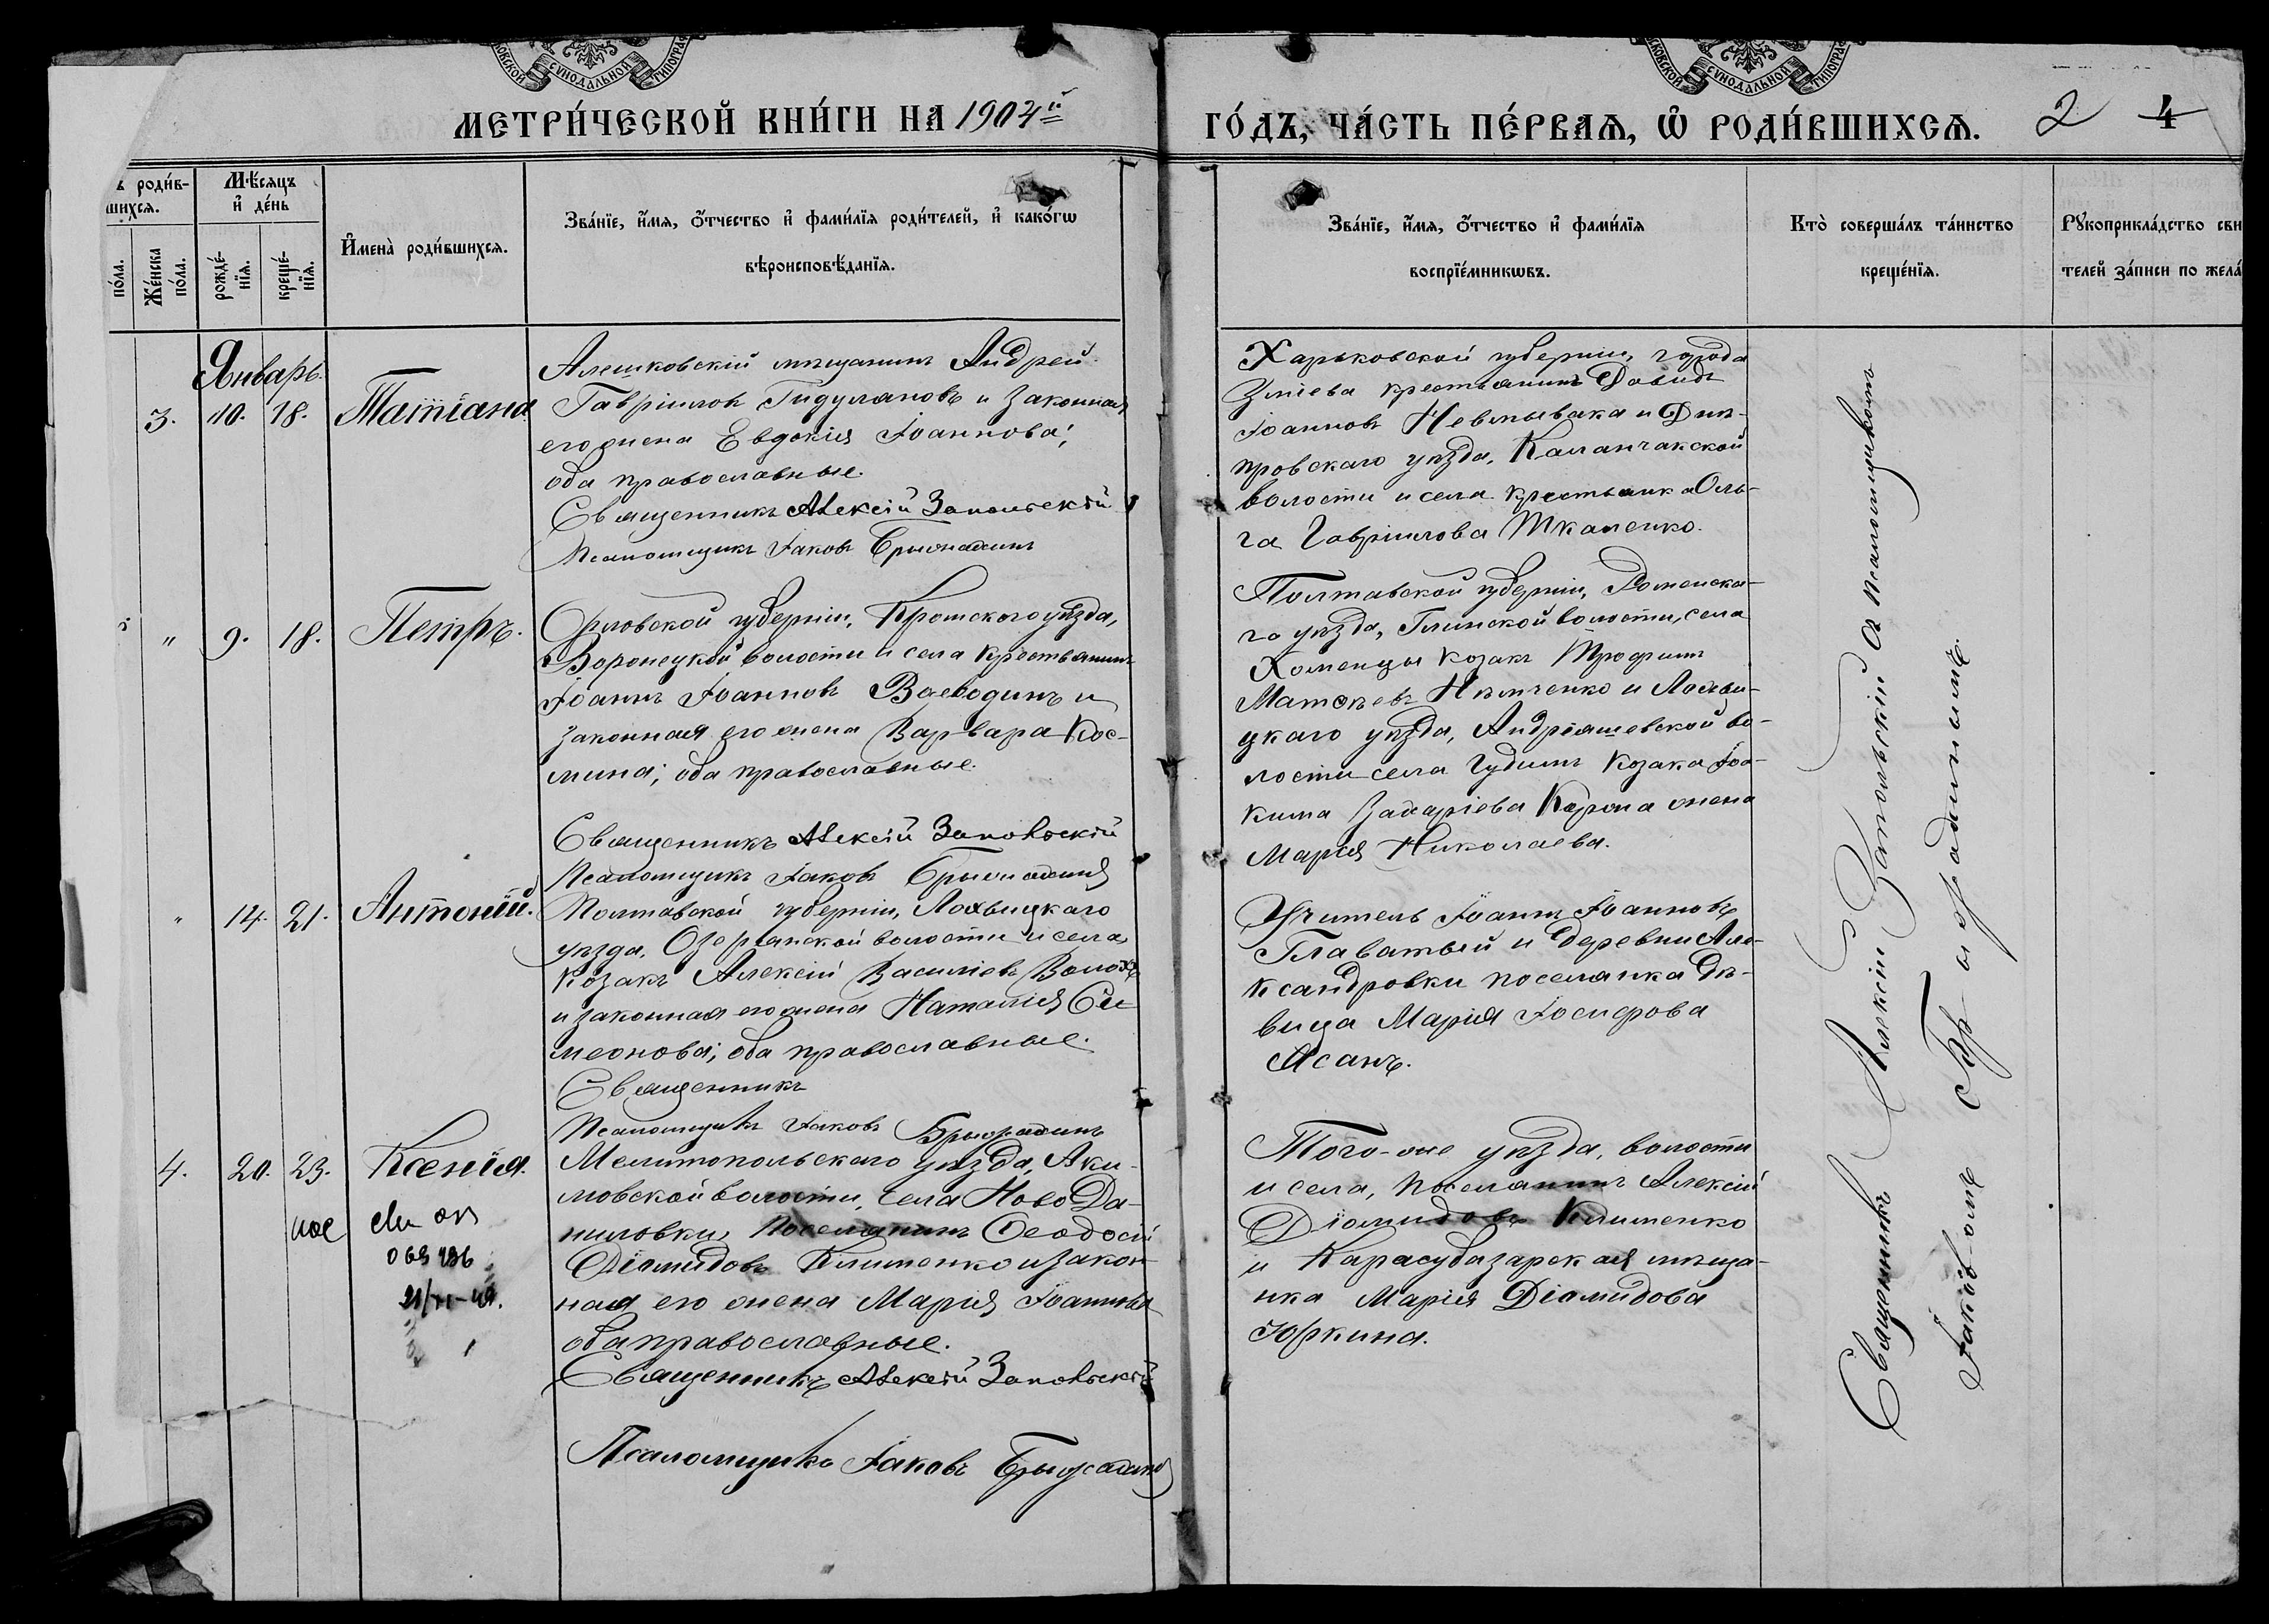 МОСКОВСКОЙ СУНОДАЛЬНОЙ ТИПОГРАФ
СКОВСКОЙ СУНОДАЛЬНОЙ ТИПОГРА
МЕТРИ́ЧЕСКОЙ КНИ́ГИ НА 1904й
ГО́ДЪ, ЧА́СТЬ ПЕ́РВАЯ, Ѡ РОДИ́ВШИХСЯ. 2 4
ъ роди́в-
шихся.
по́ла.
Же́нска по́ла.
Мѣ́сяцъ
и҆ де́нь
рожде́-
нїя.
креще́-
нїя.
И҆мена̀ роди́вшихся.
Зва́нїе, и҆́мя, ѻ҆́тчество и҆ фами́лїя роди́телей, и҆ како́гѡ
вѣроисповѣ́данїя.
Зва́нїе, и҆́мя, ѻ҆́тчество и҆ фами́лїя
воспрїе́мникѡвъ.
Кто̀ соверша́лъ та́инство
креще́нїя.
Рꙋкоприкла́дство сви
телей за́писи по жела́
Январь.
3. 10. 18. Татіана
Алешковскій мѣщанинъ Андрей
Гавріиловъ Гидуляновъ и законная
его жена Евдокія Іоаннова;
оба православные.
Священникъ Алексій Запольскій
Псаломщикъ Іаковъ
Харьковской губерніи, города
Зміева крестьянинъ Давидъ
Іоанновъ Невмывака и Днѣ-
провскаго уѣзда, Каланчакской
волости и села крестьянка Оль-
га Гавріилова Ткаченко.
" 9. 18. Петръ.
Орловской губерніи, Кромскаго уѣзда,
Воронецкой волости и села крестьянинъ
Іоаннъ Іоанновъ Воеводинъ и
законная его жена Варвара Кос-
мина; оба православные.
Священникъ Алексій Запольскій
Псаломщикъ Іаковъ
Полтавской губерніи, Роменска-
го уѣзда, Глинской волости, села
Хоменцы козакъ Трофимъ
Матѳеевъ Нѣмченко и Лохви-
цкаго уѣзда, Андріяшевской во-
лости села Гудимъ козака Іоа-
кима Захаріева жена
Марія Николаева.
" 14. 21. Антоній.
Полтавской губерніи, Лохвицкаго
уѣзда, Озерянской волости и села
козакъ Алексій Василіевъ
и законная его жена Наталія Си-
меонова; оба православные.
Священникъ
Псаломщикъ Іаковъ
Учитель Іоаннъ Іоанновъ
Главатый и деревни Але-
ксандровки поселянка дѣ-
вица Марія Іосифова
Асанъ.
4. 20. 23. Ксенія.
Мелитопольскаго уѣзда, Аки-
мовской волости, села Ново Да-
ниловки, поселянинъ Ѳеодосій
Діомидовъ Клименко и закон-
ная его жена Марія Іоаннова
оба православные.
Священникъ Алексій Запольскій
Псаломщикъ Іаковъ
Того-же уѣзда, волости
и села, поселянинъ Алексій
Діомидовъ Клименко
и Карасубазарская мѣща-
нка Марія Діомидова
Юркина.
Священникъ Алексій Запольскій съ псаломщикомъ
Іаковомъ